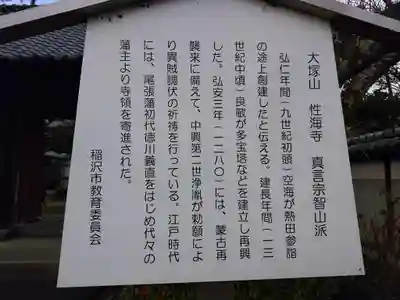 大塚山　性海寺　真言宗智山派
弘仁年間(九世紀初頭)空海が熱田参詣
の途上創建したと伝える。建長年間(一三
世紀中頃)良敏が多宝塔などを建立し再興
した。弘安三年(一二八〇)には、蒙古再
襲来に備えて、中興第二世浄胤が勅願によ
り異賊調伏の祈祷を行っている。江戸時代
には、尾張藩初代徳川義直をはじめ代々の
藩主より寺領を寄進された。
稲沢市教育委員会